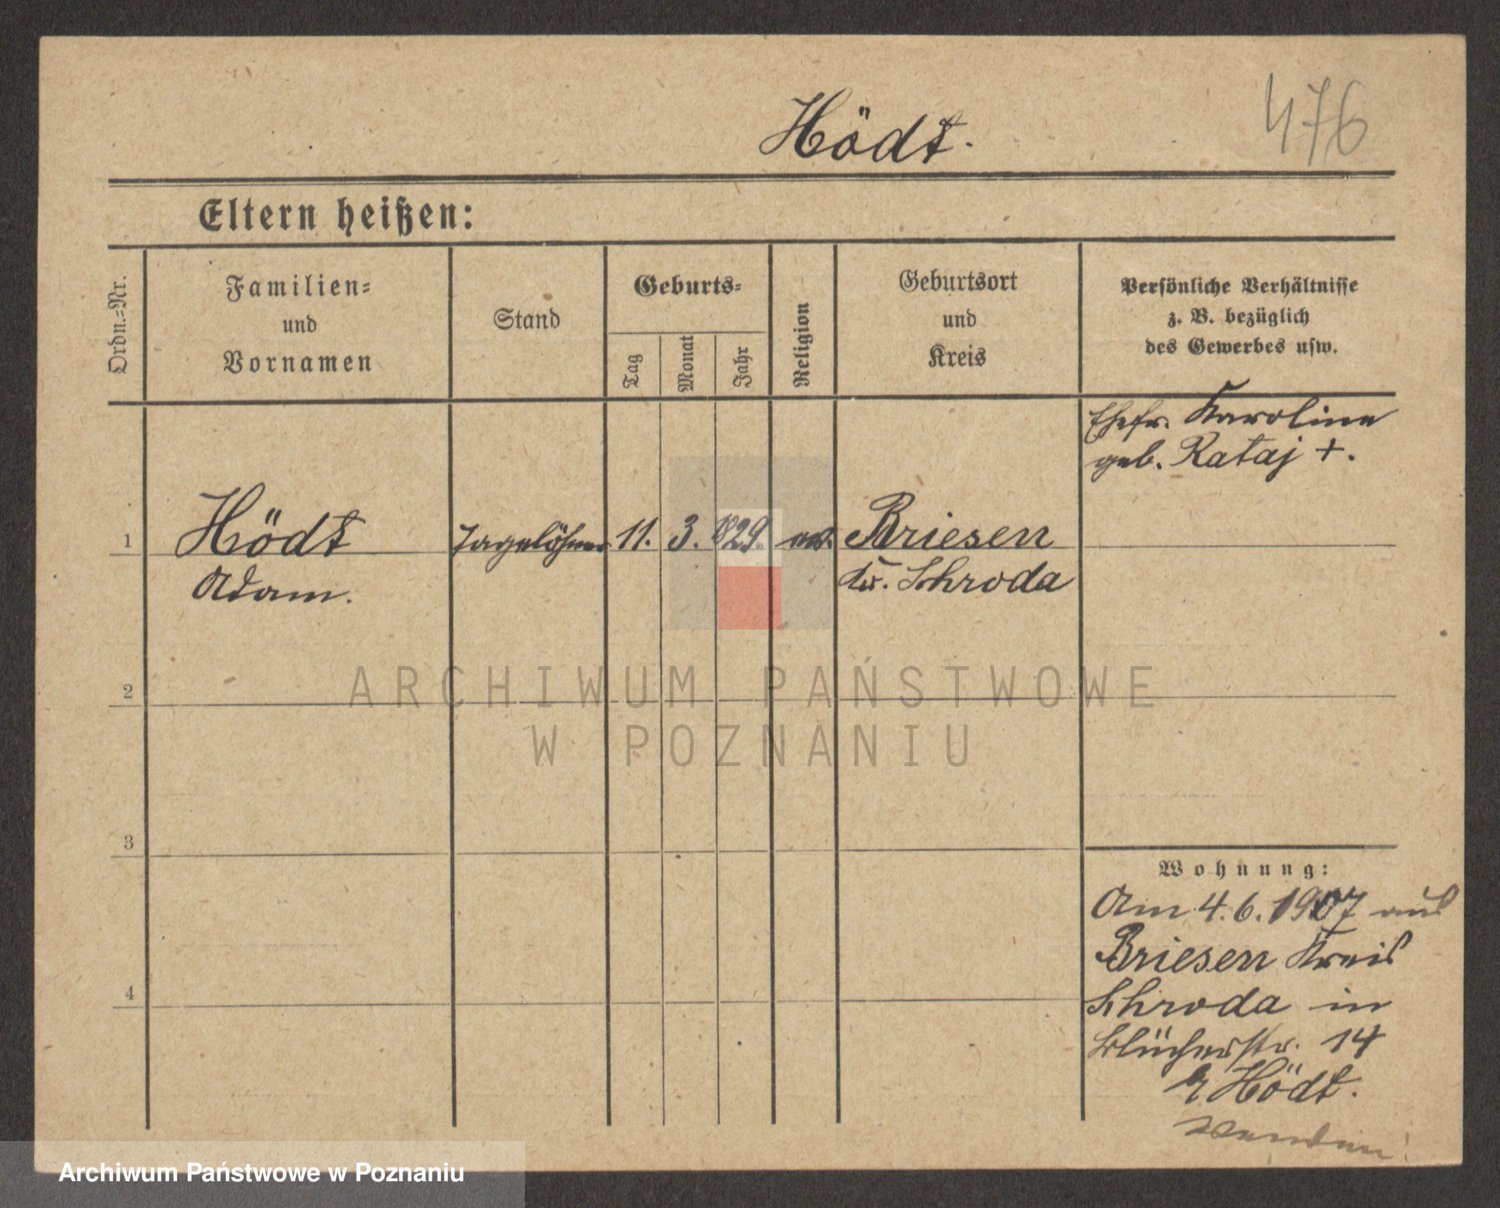 Hödt.
476
Eltern heißen:
Ordn.=Nr.
Familien=
und
Vornamen
Stand
Geburts=
Tag
Monat
Jahr
Religion
Geburtsort
und
Kreis
Persönliche Verhältnisse
z. B. bezüglich
des Gewerbes usw.
Ehefr. Karoline
geb. Rataj +.
1
Hödt
Adam.
Tagelöhner
11.
3.
829.
Briesen
Kr. Schroda
2
3
4
Wohnung:
Am 4.6.1907 aus
Briesen Kreis
Schroda in
Blücherstr. 14
Hödt.
wenden!
ARCHIWUM PAŃSTWOWE
W POZNANIU
Archiwum Państwowe w Poznaniu